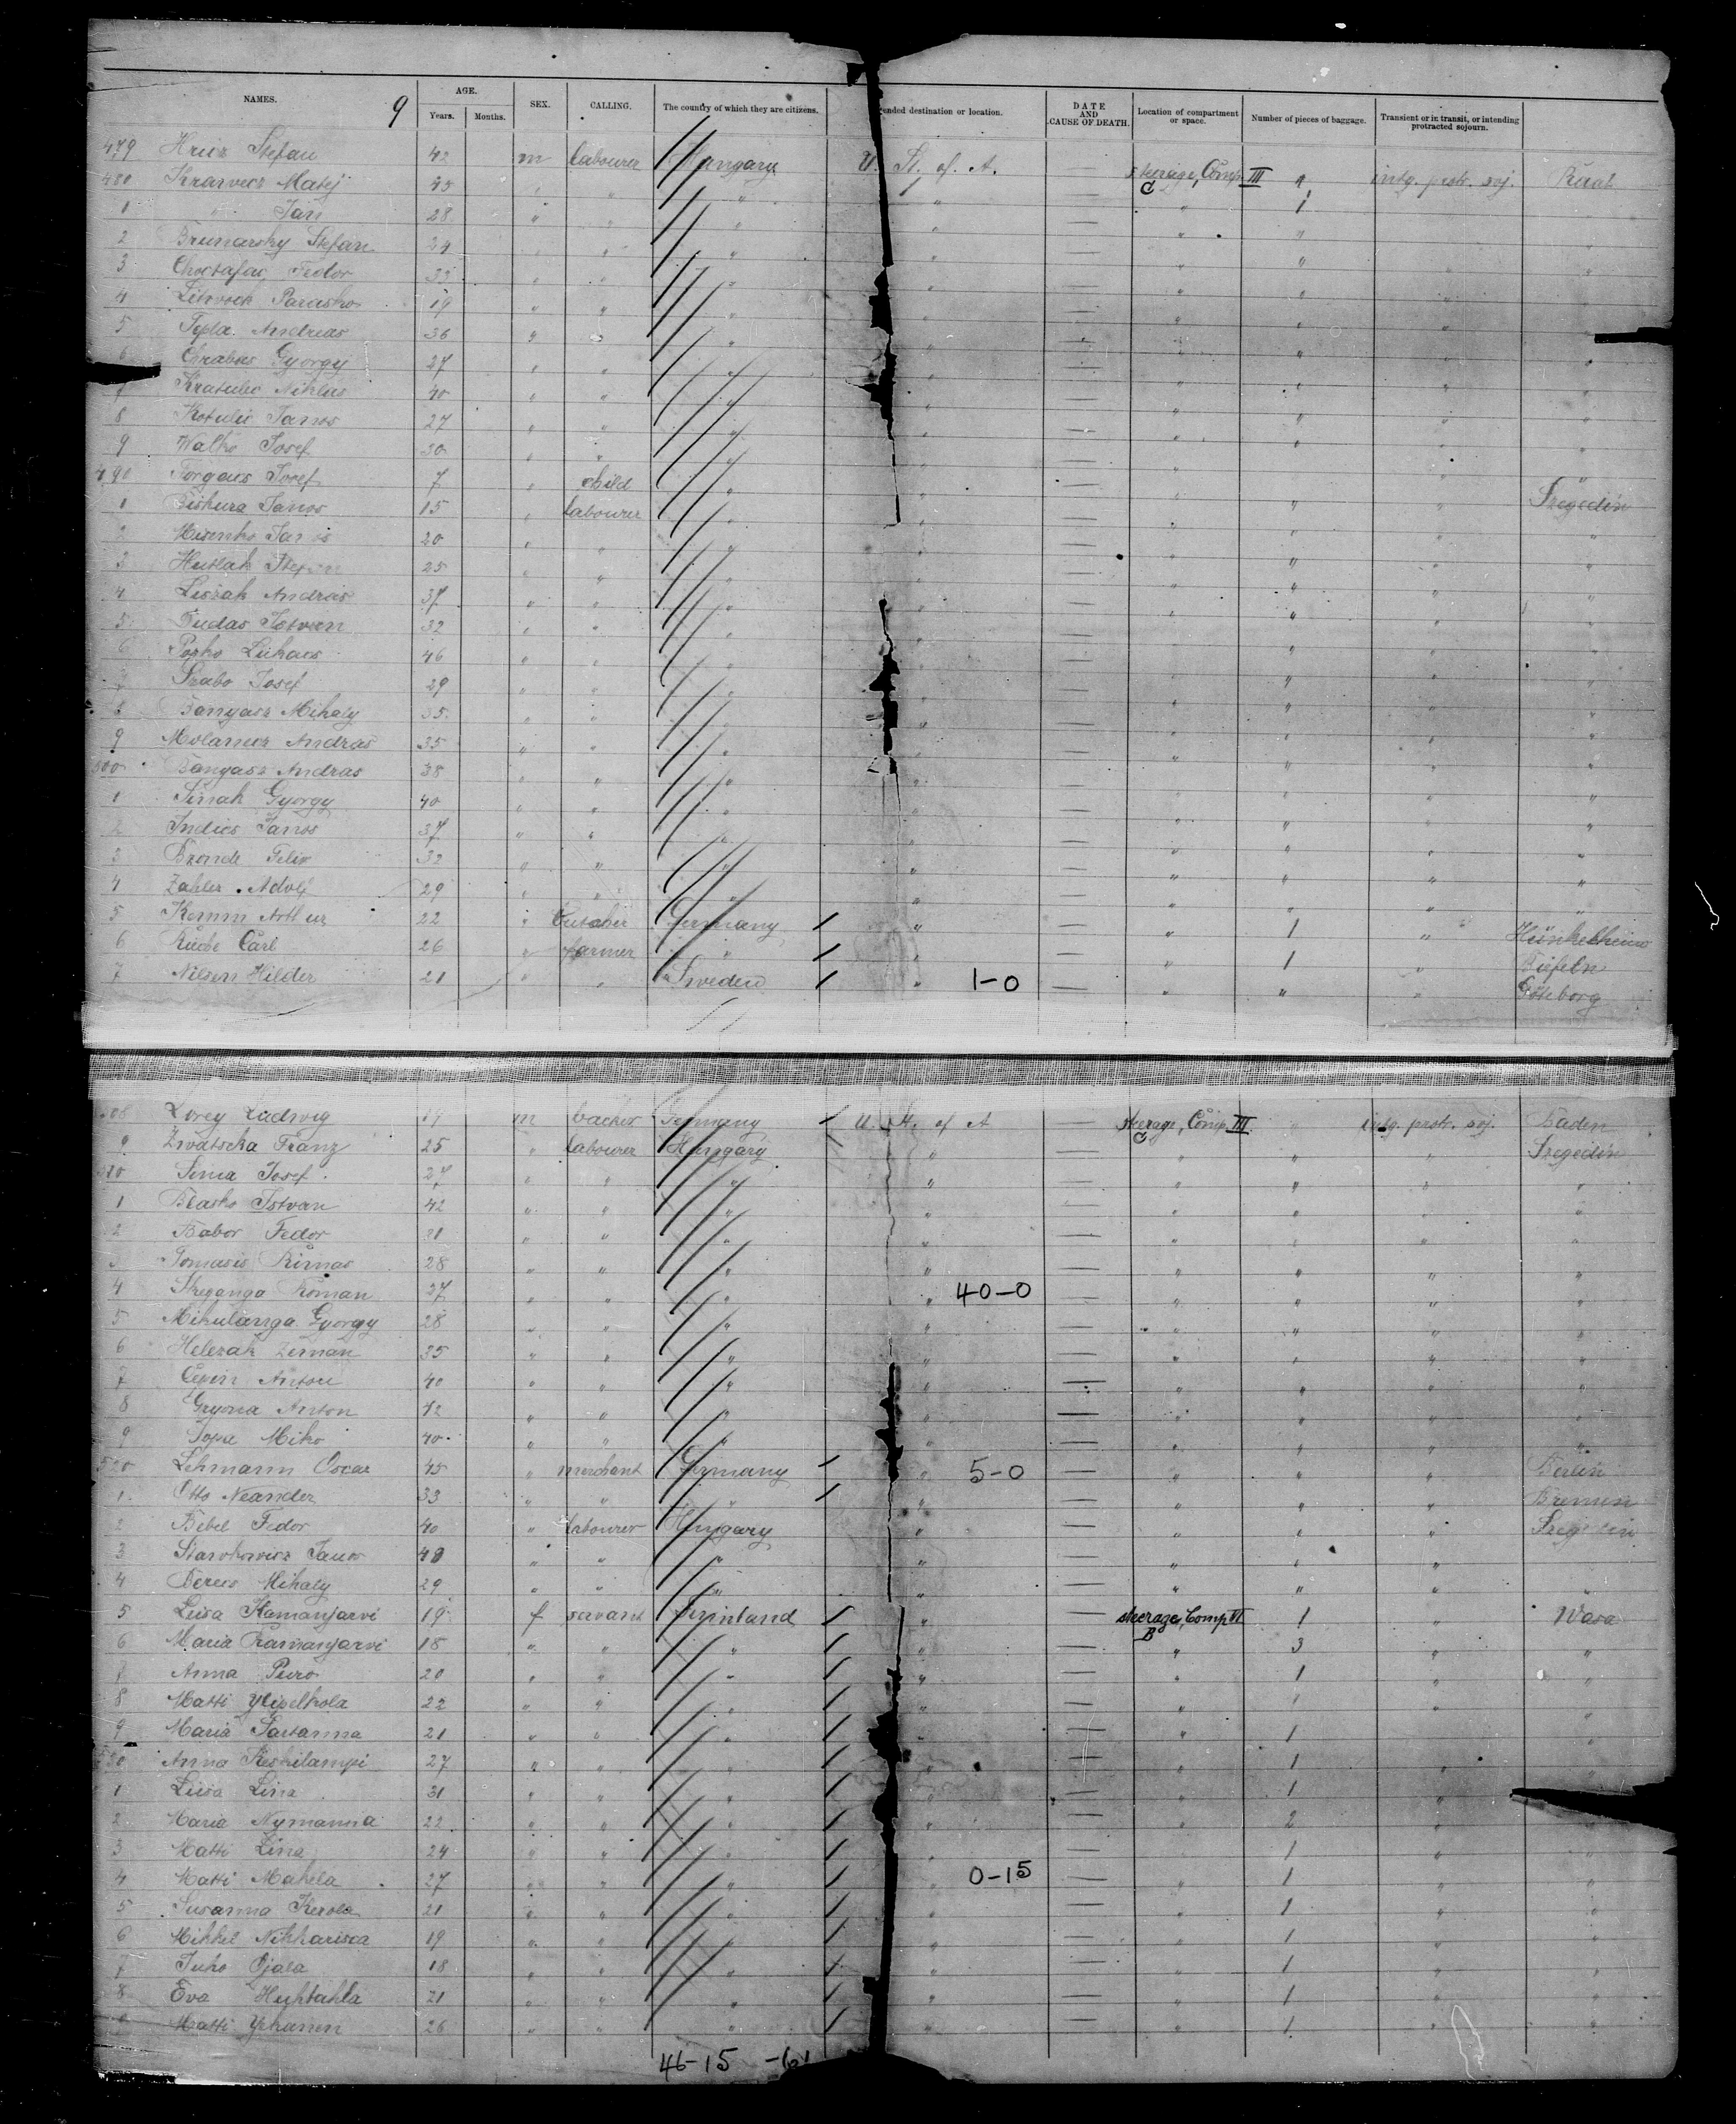 NAMES. 9 AGE. Years. Months. SEX. CALLING. The country of which they are citizens. ended destination or location. DATE AND CAUSE OF DEATH. Location of compartment or space. Number of pieces of baggage. Transient or in transit, or intending protracted sojourn.
479 Hruz Stefan 42 m labourer Hungary U. St. of. A. — steerage, Comp III C 1 intg. protr. soj. Raab
480 Krawecz Matej 45 " " " " — " 1 " "
1 " Jan 28 " " " " — " " " "
2 Brunarsky Stefan 24 " " " " — " " " "
3 Fedor 33 " " " " — " " " "
4 Parasko 19 " " " " — " " " "
5 Andreas 36 " " " " — " " " "
6 Gyorgy 27 " " " " — " " " "
7 Niklas 40 " " " " — " " " "
8 Kotulic Janos 27 " " " " — " " " "
9 Walko Josef 30 " " " " — " " " "
490 Josef 7 " child " " — " " " "
1 Janos 15 " labourer " " — " " " Szegedin
2 Misenko Janos 20 " " " " — " " " "
3 Hutlak Stefan 25 " " " " — " " " "
4 Liszak Andras 37 " " " " — " " " "
5 Istvan 32 " " " " — " " " "
6 Popko Lukacs 46 " " " " — " " " "
7 Szabo Josef 29 " " " " — " " " "
8 Banyasz Mihaly 35 " " " " — " " " "
9 Molanucz Andras 35 " " " " — " " " "
500 Banyasz Andras 38 " " " " — " " " "
1 Simak Gyorgy 40 " " " " — " " " "
2 Indics Janos 37 " " " " — " " " "
3 Felix 32 " " " " — " " " "
4 Zahler Adolf 29 " " " " — " " " "
5 Kemm Arthur 22 " butcher Germany " — " 1 " Hünkelheim
6 Carl 26 " farmer " " — " 1 "
7 Nilsen Hilder 21 " " Sweden " 1-0 — " " " Göteborg
508 Lorey Ludwig 19 m backer Germany U. St. of A — steerage, Comp. III C " intg. protr. soj. Baden
9 Zwatscka Franz 25 " labourer Hungary " — " " " Szegedin
510 Sima Josef 27 " " " " — " " " "
1 Blasko Istvan 42 " " " " — " " " "
2 Babor Fedor 31 " " " " — " " " "
3 Tomasis Rimas 28 " " " " — " " " "
4 Roman 27 " " " " 40-0 — " " " "
5 Mikulanga Gyorgy 28 " " " " — " " " "
6 Helezak Zeman 35 " " " " — " " " "
7 Anton 40 " " " " — " " " "
8 Gryona Anton 42 " " " " — " " " "
9 Popa Miko 40 " " " " — " " " "
520 Lehmann Oscar 45 " merchant Germany " 5-0 — " " " Berlin
1 Otto Neander 33 " " " " — " " " Bremen
2 Bebel Fedor 40 " labourer Hungary " — " " " Szegedin
3 Starchowicz Janos 48 " " " " — " " " "
4 Mihaly 29 " " " " — " " " "
5 Luisa Kamanjarvi 19 f servant Finnland " — steerage, Comp VI B 1 " Wasa
6 Maria Ramanjarvi 18 " " " " — " 3 " "
7 Anna Puro 20 " " " " — " 1 " "
8 Matti 22 " " " " — " 1 " "
9 Maria 21 " " " " — " 1 " "
530 Anna Keskilampi 27 " " " " — " 1 " "
1 Luisa Lina 31 " " " " — " 1 " "
2 Maria Nymanna 22 " " " " — " 2 " "
3 Matti Lina 24 " " " " — " 1 " "
4 Matti Makela 27 " " " " 0-15 — " 1 " "
5 Susanna Kerola 21 " " " " — " 1 " "
6 Mikkel 19 " " " " — " 1 " "
7 Juho Ojala 18 " " " " — " 1 " "
8 Eva Huhtahla 21 " " " " — " 1 " "
9 Matti 26 " " " " — " 1 " "
46-15